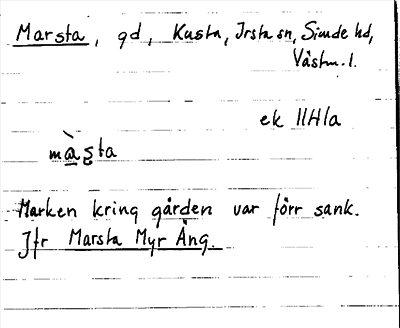 Marsta, gd, Kusta, Irsta sn, Siende hd,
Västm. l.
ek 11H1a
màsta
Marken kring gården var förr sank.
Jfr Marsta Myr Äng.